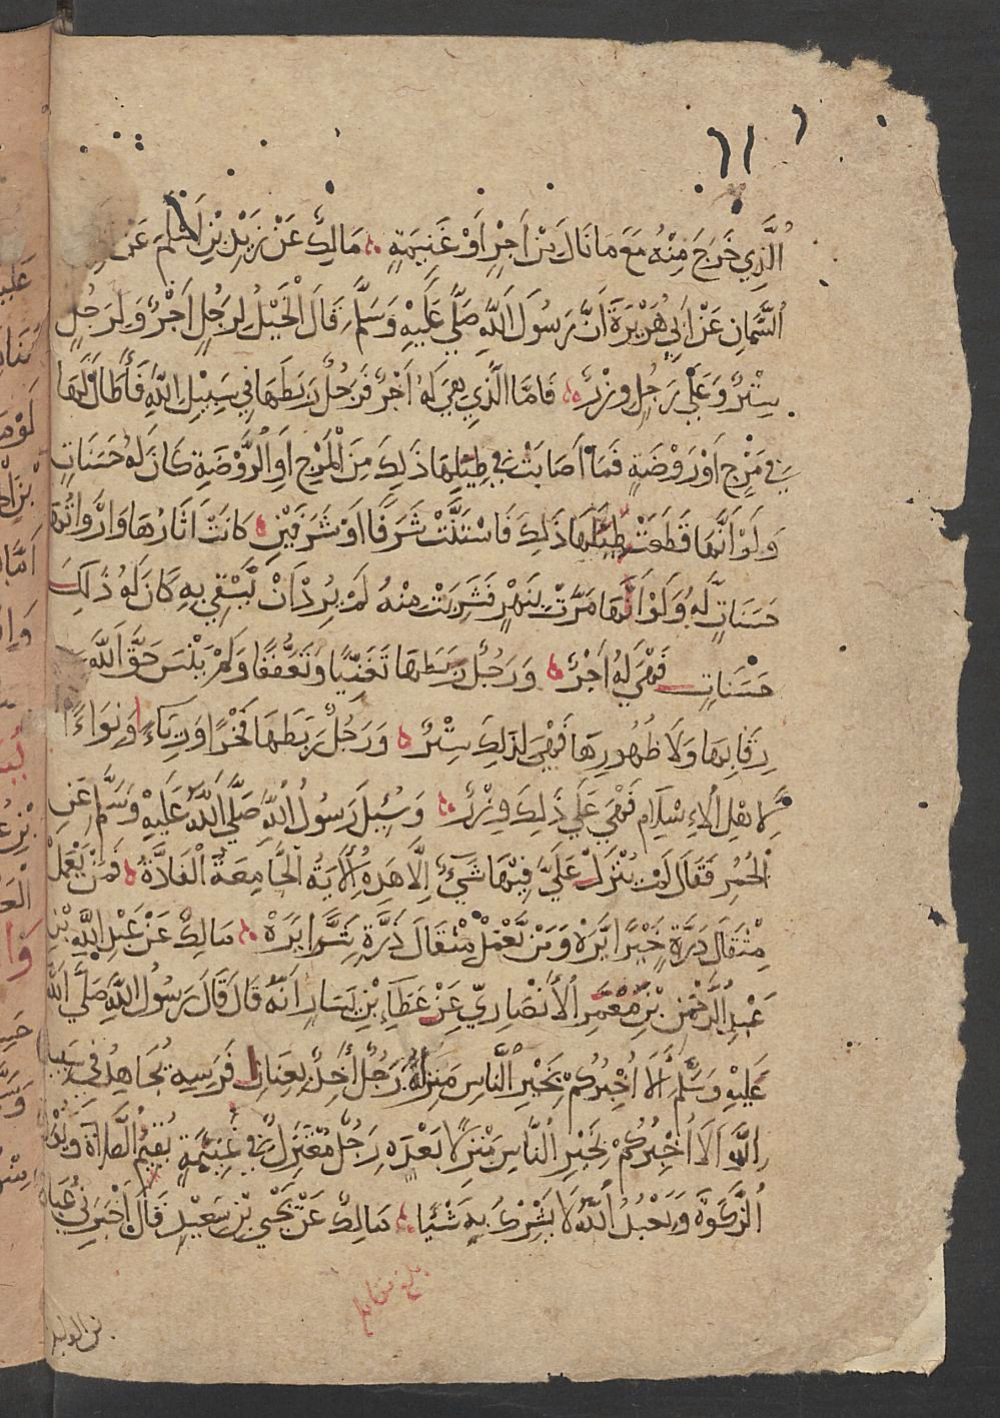 الَّذِي خَرَجَ مِنْهُ مَعَ مَا نَالَ مِنْ أَجْرٍ أَوْ غَنِيمَةٍ مَالِكٌ عَنْ زَيْدِ بْنِ أَسْلَمَ عَنْ
السَّمَّانِ عَنْ أَبِي هُرَيْرَةَ أَنَّ رَسُولَ اللَّهِ صَلَّى عَلَيْهِ وَسَلَّمَ قَالَ الْخَيْلُ لِرَجُلٍ أَجْرٌ وَلِرَجُلٍ
سِتْرٌ وَعَلَى رَجُلٍ وِزْرٌ فَامَّا الَّذِي هِيَ لَهُ أَجْرٌ فَرَجُلٌ رَبَطَهَا فِي سَبِيلِ اللَّهِ فَأَطَالَ لَهَا
فِي مَرْجٍ أَوْ رَوْضَةٍ فَمَا أَصَابَتْ فِي طِيَلِهَا ذَلِكَ مِنَ الْمَرْجِ أَوِ الرَّوْضَةِ كَانَ لَهُ حَسَنَاتٍ
وَلَوْ أَنَّهَا قَطَعَتْ طِيَلَهَا ذَلِكَ فَاسْتَنَّتْ شَرَفًا أَوْ شَرَفَيْنِ كَانَتْ آثَارُهَا وَأَرْوَاثُهَا
حَسَنَاتٍ لَهُ وَلَوْ أَنَّهَا مَرَّتْ بِنَهْرٍ فَشَرِبَتْ مِنْهُ لَمْ يُرِدْ أَنْ يَسْقِي بِهِ كَانَ لَهُ ذَلِكَ
حَسَنَاتٍ فَهْيَ لَهُ أَجْرٌ وَرَجُلٌ رَبَطَهَا تَغَنِّيًا وَتَعَفُّفًا وَلَمْ يَنْسَ حَقَّ اللَّهِ
رِقَابِهَا وَلَا ظُهُورِهَا فَهْيَ لِذَلِكَ سِتْرٌ وَرَجُلٌ رَبَطَهَا فَخْرًا وَرِيَاءً وَنِوَاءً
لِأَهْلِ الْإِسْلَامِ فَهْيَ عَلَى ذَلِكَ وِزْرٌ وَسُئِلَ رَسُولُ اللَّهِ صَلَّى اللَّهُ عَلَيْهِ وَسَلَّمَ عَنِ
الْحُمُرِ فَقَالَ لَمْ يُنْزَلْ عَلَيَّ فِيهَا شَيْءٌ إِلَّا هَذِهِ الْآيَةُ الْجَامِعَةُ الْفَاذَّةُ فَمَنْ يَعْمَلْ
مِثْقَالَ ذَرَّةٍ خَيْرًا يَرَهْ وَمَنْ يَعْمَلْ مِثْقَالَ ذَرَّةٍ شَرًّا يَرَهْ مَالِكٌ عَنْ عَبْدِ اللَّهِ بْنِ
عَبْدِ الرَّحْمَنِ بْنِ مَعْمَرٍ الْأَنْصَارِيِّ عَنْ عَطَاءِ بْنِ يَسَارٍ أَنَّهُ قَالَ قَالَ رَسُولُ اللَّهِ صَلَّى اللَّهُ
عَلَيْهِ وَسَلَّمَ أَلَا أُخْبِرُكُمْ بِخَيْرِ النَّاسِ مَنْزِلَةً رَجُلٌ آخِذٌ بِعِنَانِ فَرَسِهِ يُجَاهِدُ فِي سَبِيلِ
اللَّهِ أَلَا أُخْبِرُكُمْ بِخَيْرِ النَّاسِ مَنْزِلًا بَعْدَهِ رَجُلٌ مُعْتَزِلٌ فِي غُنَيْمَةٍ يُقِيمُ الصَّلَاةَ وَيُؤْتِي
الزَّكَوةَ وَيَعْبُدُ اللَّهَ لَا يُشْرِكُ بِهِ شَيْئًا مَالِكٌ عَنْ يَحْيَى بْنِ سَعِيدٍ قَالَ أَخْبَرَنِي عُبَادَةُ
بلغ مقابلة
بن الوليد